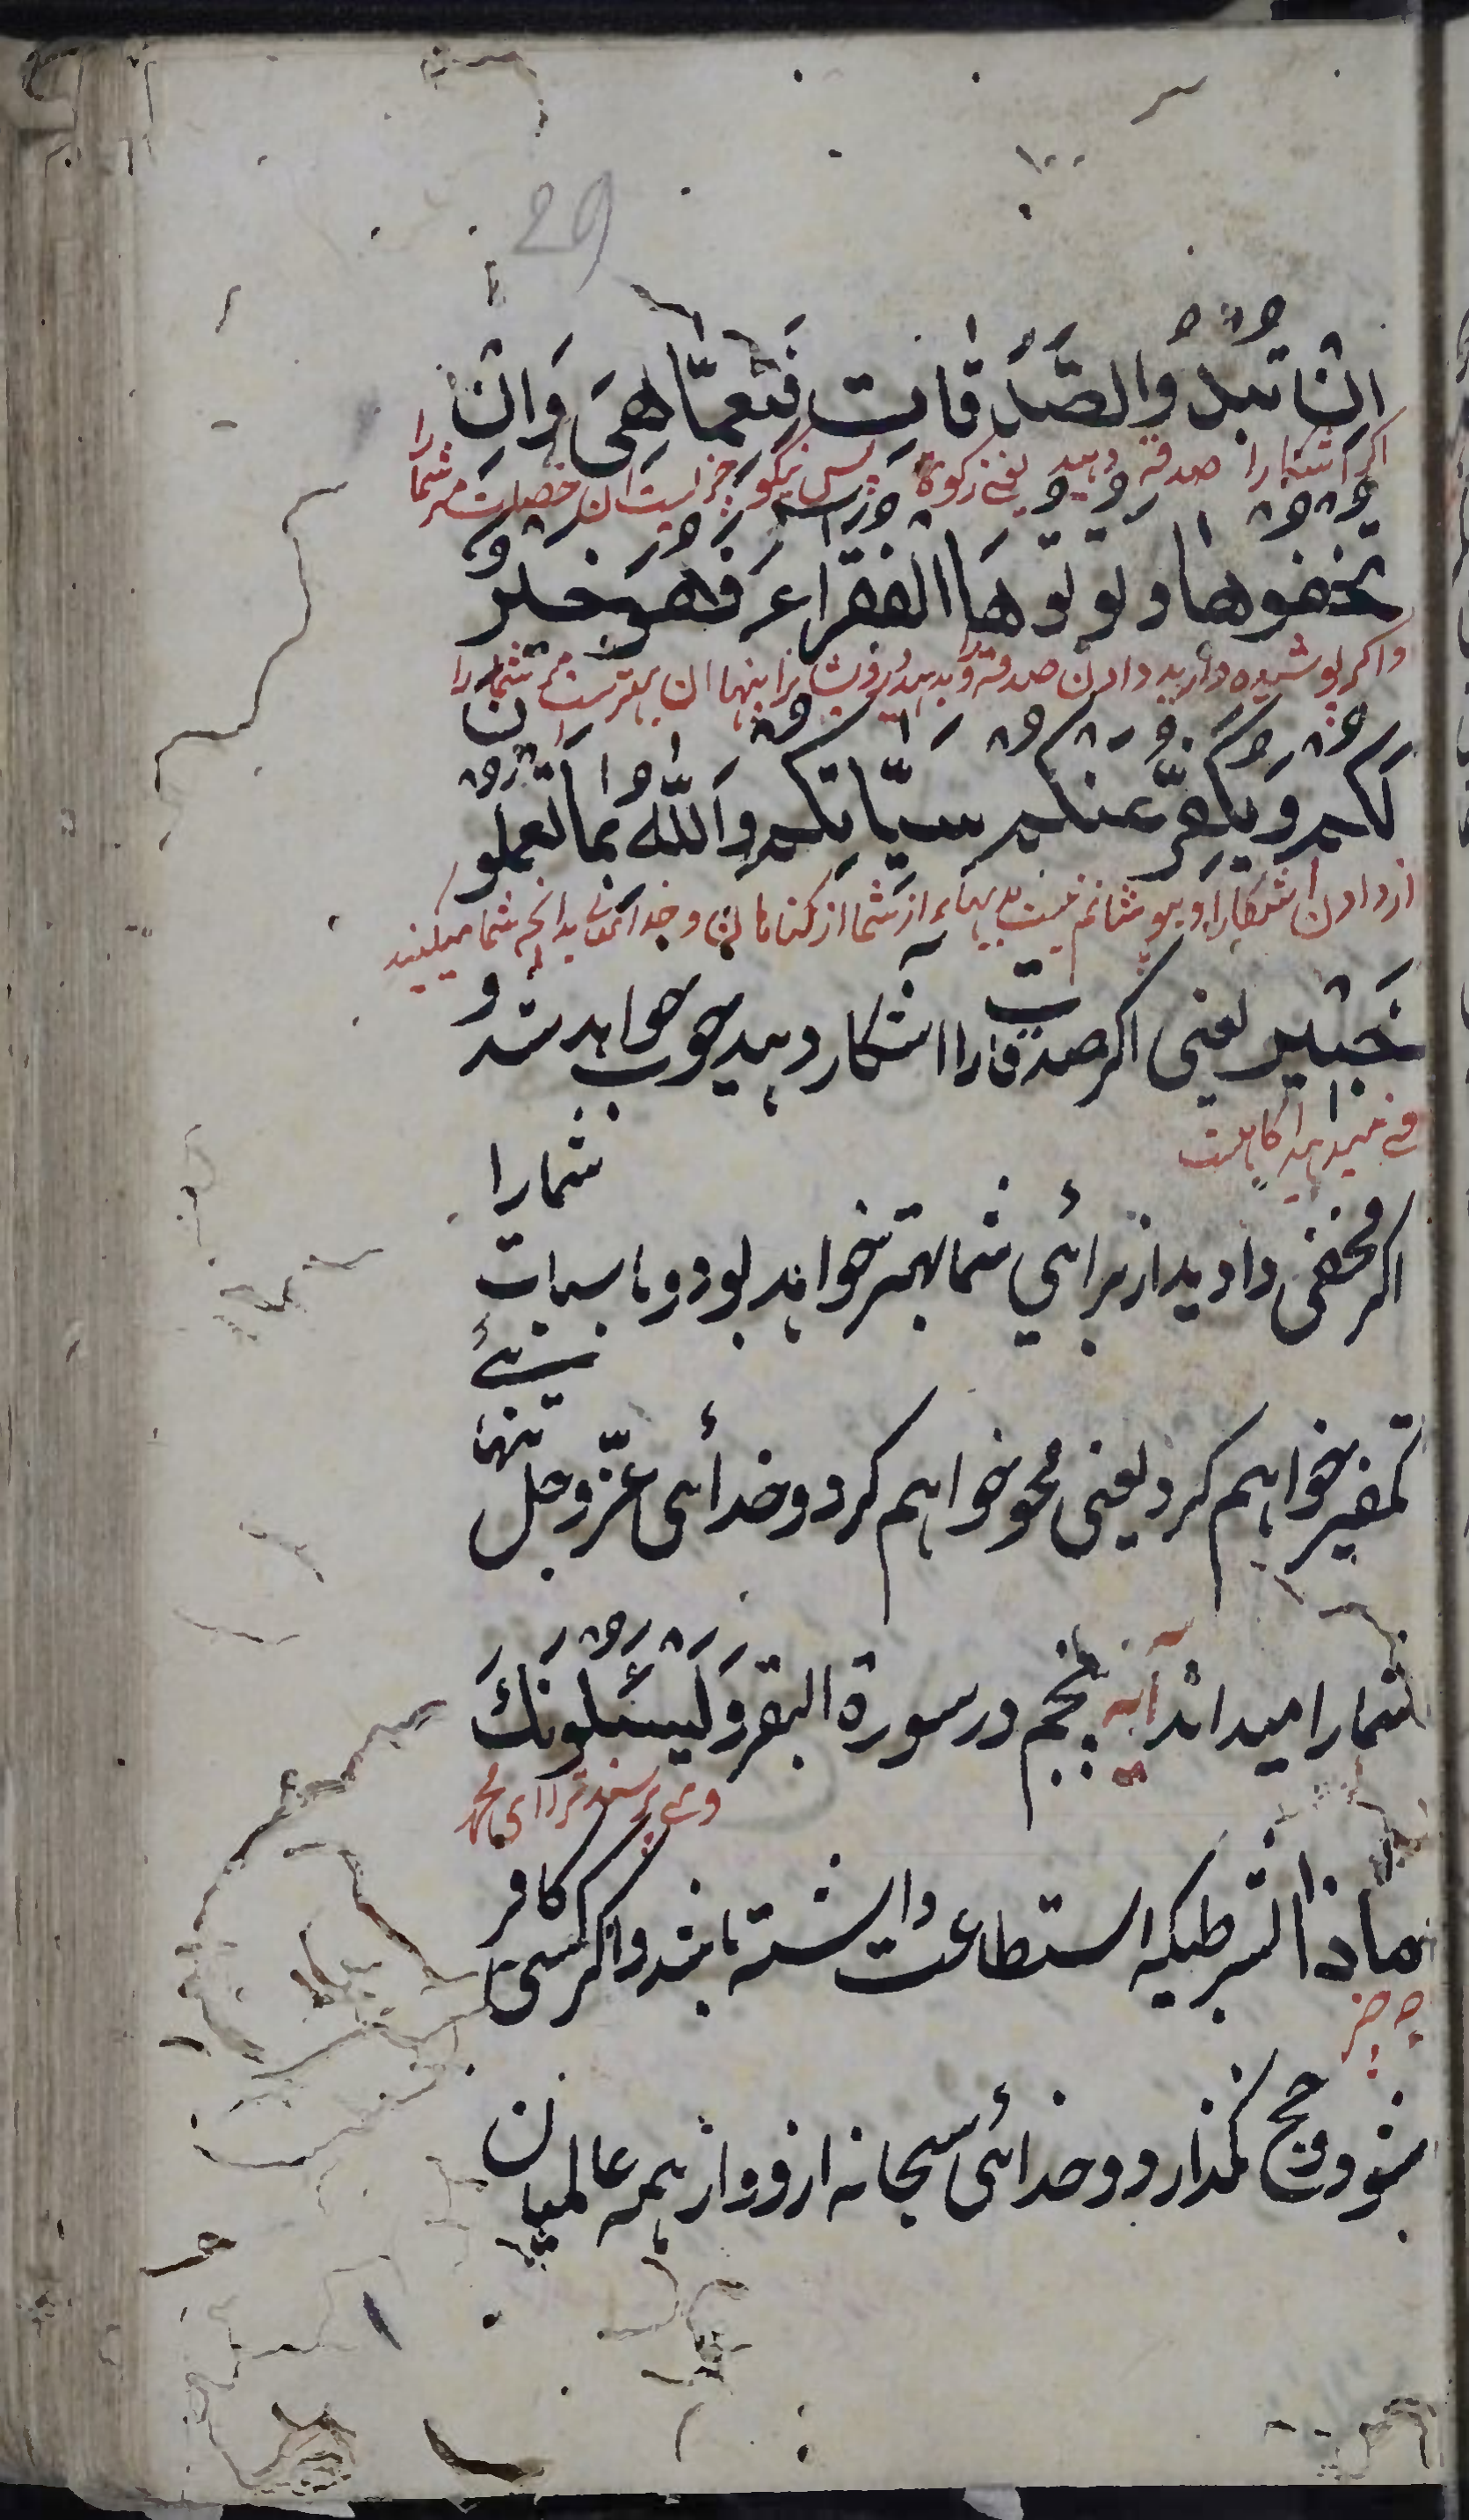 29
اِنْ تُبْدُوا الصَّدَقَاتِ فَنِعِمَّا هِىَ وَاِنْ
اکر اشکارا صدقه دهید یعنی زکوة پس نیکو چیزیست ان خصلت مر شما را
تُخْفُوْهَا وَتُؤْتُوْهَا الْفُقَرَاءَ فَهُوَ خَيْرٌ
واکر پوشیده دارید دادن صدقه و بدهید درویشانرا پنهان ان بهترست مر شما را
لَكُمْ وَيُكَفِّرُ عَنْكُمْ سَيِّاٰتِكُمْ وَاللّٰهُ بِمَا تَعْمَلُوْنَ
از دادن اشکارا و بپوشانم از شما از کناهان و خدای بدانچه شما میکنید
خَبِيْرٌ یعنی اکر صدقات را آشکار دهید خوب خواهد شد و
اکاهست
اکر مخفی دادید از برائی شما بهتر خواهد بود و ما سیات شما را
تکفیر خواهیم کرد یعنی محو خواهیم کرد و خدائی عزّ و جل
شما را میداند آیه پنجم در سورة البقر وَيَسْئَلُوْنَكَ
ومی پرسند ترا ای محمد
ماذا بشرطیکه استطاعت داشته باشد و اکر کسی کافر
چه چیز
بشود و حج نکذارد و خدائی سبحانه از و و از همه عالمیان